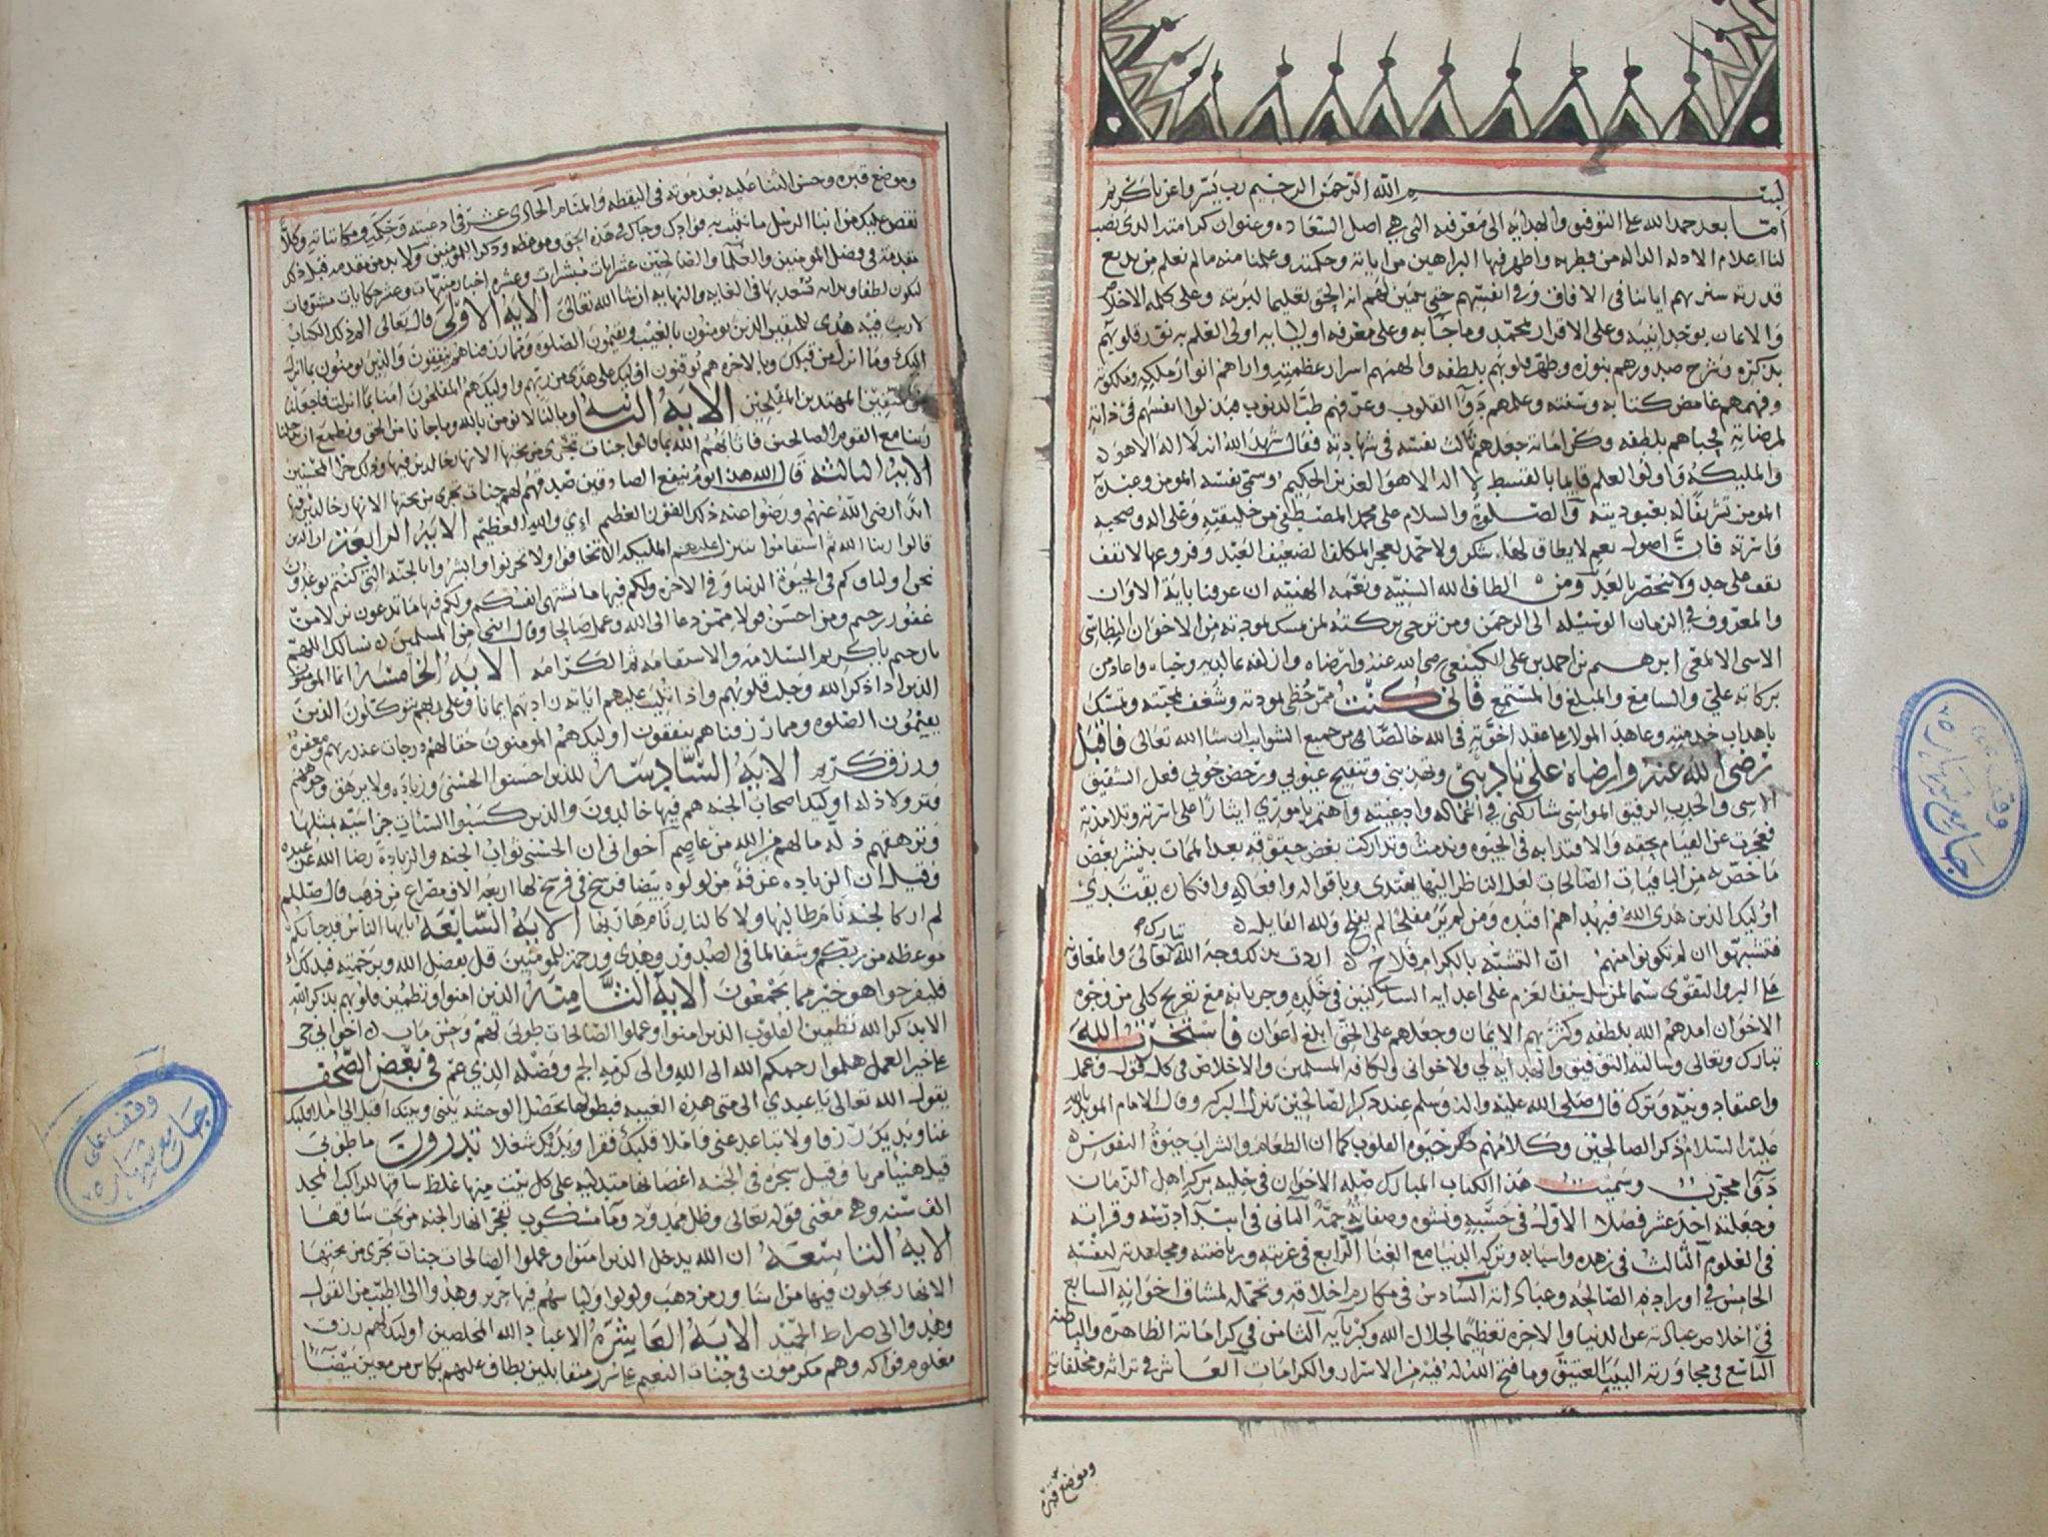 بسم الله الرحمن الرحيم رب يسر واعن يا كريم
أما بعد حمد الله على التوفيق والهدايه الى معرفته التي هي اصل السعاده وعنوان كرامته الذي نصب
لنا اعلام الادله الداله من فطرته واظهر فيها البراهين من اياته وحكمته وعلمنا منه مالم نعلم من بديع
قدرته سنريهم اياتنا في الافاق وفي انفسهم حتى يتبين لهم انه الحق تعليما لبريته وعلى كلمه الاخلاص
والايمان بوحدانيته وعلى الاقرار بمحمد وما جا به وعلى معرفه اوليائه اولى العلم به نور قلوبهم
بذكره وشرح صدورهم بنوره وطهر قلوبهم بلطفه والهمهم اسرار عظمته واراهم انوار ملكه وملكوته
وفهمهم غامض كتابه وسنته وعلمهم دوا القلوب وعرفهم طب الذنوب فبذلوا انفسهم في ذاته
لمرضاته فحباهم بلطفه وكراماته جعلهم ثالث نفسه في شهادته فقال شهد الله انه لا اله الا هو
والمليكه واولوا العلم قايما بالقسط لا اله الا هو العزيز الحكيم وسمى نفسه المومن وعبده
المومن تشريفا له بعبوديته والصلوه والسلام على محمد المصطفى من خليقته وعلى اله وصحبه
فان اصول نعيم لا يطاق لها شكر ولا حمد لعجز المكلف الضعيف العبد وفروعها لا تقف
تقف على حد ولا تنحصر بالعد ومن الطاف الله السنيه ونعمه الهنيه ان عرفنا باية الاوان
والمعروف في الزمان الوسيله الى الرحمن ومن ترجى بركته لمن مسك بمودته من الاخوان
ابرهيم بن احمد بن علي الكينعي رضي الله عنه وارضاه وازلفه عاليه وحباه واعاد من
بركاته علي والسامع والمبلغ والمستمع فاني كنت ممن حظي بمودته وشغف بمحبته وتمسك
باهداب خدمته وعاهد المولا على عقد اخوته في الله خالصا من جميع الشوايب ان شا الله تعالى فاقبل
رضي الله عنه وارضاه على تاديبي وتهذيبي وتنقيح عيوبي ورحض حوبي فعل الشفيق
الاسي والحدب الرفيق المواسي شاركني في اعماله وادعيته واهتم باموري ايثارا على اسرته وتلامذته
فعجزت عن القيام بحقه والاقتداء به في الحيوه وندمت وتداركت بعض حقوقه بعد الممات بنشر بعض
ما خصه من الباقيات الصالحات لعل الناظر اليها يهتدي وباقواله وافعاله وافكاره يقتدي
اوليك الذين هدى الله فبهداهم اقتده ومن لم ير مفلحا لم يفلح ولله القايل
فتشبهوا ان لم تكونوا منهم ان التشبه بالكرام فلاح اردت بذلك وجه الله تبارك وتعالى والمعاونه
على البر والتقوى
الاخوان امدهم الله بلطفه وكثر بهم الايمان وجعلهم على الحق ابلغ اعوان فاستخرت الله
تبارك وتعالى وسالته التوفيق والهدايه لي ولاخواني ولكافه المسلمين والاخلاص في كل قول وعمل
واعتقاد ونيه وترك قال صلى الله عليه واله وسلم عند ذكر الصالحين تنزل البركه وقال الامام المويد بالله
عليه السلام ذكر الصالحين وكلامهم حيوه القلوب كما ان الطعام والشراب حيوة النفوس
دوا مجرب وسميت هذا الكتاب المبارك صله الاخوان في حليه بركه اهل الزمان
وجعلته احد عشر فصلا الاول في حسبه ونشوه وصفاته الثاني في ابتدا درسه وقراته
في العلوم الثالث في زهده واسبابه وتركه الدنيا مع الغنا الرابع في عزلته ورياضته ومجاهدته لنفسه
الخامس في اوراده الصالحه وعباداته السادس في مكارم اخلاقه وتحمله لمشاق اخوانه السابع
في اخلاص عبادته عن الدنيا والاخره تعظيما لجلال الله وكبريايه الثامن في كراماته الظاهره والباطنه
التاسع في مجاورته البيت العتيق وما فتح الله له فيه من الاسرار والكرامات العاشر في تراثه ومخلفاته
وموضع قبره
وموضع قبره وحسن الثنا عليه بعد موته في اليقظه والمنام الحادي عشر في ادعيته وحكمه ومكاتباته وكلا
نقص عليك من انبا الرسل ما نثبت به فوادك وجاك في هذه الحق وموعظه وذكرا للمومنين ولا بد من مقدمه قبل ذلك
مقدمة في فضل المومنين والعلما والصالحين عشر ايات مبشرات وعشره اخبار منبهات وعشر حكايات مشوقات
لتكون لطفا وبدايه نسعد بها في الغايه والنهايه ان شا الله تعالى الايه الاولى قال تعالى الم ذلك الكتاب
لا ريب فيه هدى للمتقين الذين يومنون بالغيب ويقيمون الصلوه ومما رزقناهم ينفقون والذين يومنون بما انزل
اليك وما انزل من قبلك وبالاخره هم يوقنون اوليك على هدى من ربهم واوليك هم المفلحون امنا بما انزلت فاجعلنا
من المتقين المهتدين المفلحين الايه الثانيه وما لنا لا نومن بالله وما جانا من الحق ونطمع ان يدخلنا
ربنا مع القوم الصالحين فاثابهم الله بما قالوا جنات تجري من تحتها الانهار خالدين فيها وذلك جزا المحسنين
الايه الثالثه قال الله هذا يوم ينفع الصادقين صدقهم لهم جنات تجري من تحتها الانهار خالدين فيها
ابدا رضي الله عنهم ورضوا عنه ذلك الفوز العظيم اي والله العظيم الايه الرابعه ان الذين
قالوا ربنا الله ثم استقاموا تتنزل عليهم المليكه الا تخافوا ولا تحزنوا وابشروا بالجنه التي كنتم توعدون
نحن اولياوكم في الحيوة الدنيا وفي الاخره ولكم فيها ما تشتهى انفسكم ولكم فيها ما تدعون نزلا من
غفور رحيم ومن احسن قولا ممن دعا الى الله وعمل صالحا وقال انني من المسلمين نسالك اللهم
يا رحيم يا كريم السلامه والاستقامه ثم الكرامه الايه الخامسه انما المومنون
الذين اذا ذكر الله وجلت قلوبهم واذا تليت عليهم اياته زادتهم ايمانا وعلى ربهم يتوكلون الذين
يقيمون الصلوه ومما رزقناهم ينفقون اوليك هم المومنون حقا لهم درجات عند ربهم ومغفره
ورزق كريم الايه السادسه للذين احسنوا الحسنى وزياده ولا يرهق وجوههم
قتر ولا ذله اوليك اصحاب الجنه هم فيها خالدون والذين كسبوا السيئات جزا سيئه بمثلها
وترهقهم ذله مالهم من الله من عاصم اخواني ان الحسنى ثواب الجنه والزيادة رضا الله عن عبده
وقيل ان الزياده غرفة من لولوه بيضا فرسخ في فرسخ لها اربعه الاف مصراع من ذهب قال صللم
لم ار كالجنه نام طالبها ولا كالنار نام هاربها الايه السابعه يا ايها الناس قد جاتكم
موعظه من ربكم وشفا لما في الصدور وهدى ورحمة للمومنين قل بفضل الله وبرحمته فبذلك
فليفرحوا هو خير مما يجمعون الايه الثامنه الذين امنوا وتطمئن قلوبهم بذكر الله
الا بذكر الله تطمئن القلوب الذين امنوا وعملوا الصالحات طوبى لهم وحسن ماب اخواني حي
على خير العمل هلموا رحمكم الله الى الله والى كرمه الجم وفضله الذي عم في بعض الصحف
يقول الله تعالى يا عبدي الى متى هذه الغيبه
غنا وبديك رزقا ولا تباعد عني فاملا قلبك فقرا وبديك شغلا تدرون ما طوبى
قيل هنيا مريا وقيل شجره في الجنه اغصانها متدليه على كل بيت منها غلظ ساقها للراكب المجد
الف سنه وهي معنى قوله تعالى وظل ممدود وما مسكوب تفجر انهار الجنه من تحت ساقها
الايه التاسعه ان الله يدخل الذين امنوا وعملوا الصالحات جنات تجري من تحتها
الانهار يحلون فيها من اساور من ذهب ولولوا ولباسهم فيها حرير وهدوا الى الطيب من القول
وهدوا الى صراط الحميد الايه العاشره الا عباد الله المخلصين اوليك لهم رزق
معلوم فواكه وهم مكرمون في جنات النعيم على سرر متقابلين يطاف عليهم بكاس من معين بيضا
وقف على
جامع شهاره
وقف على
جامع شهاره